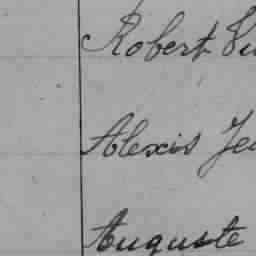 Robert
Alexis
Auguste